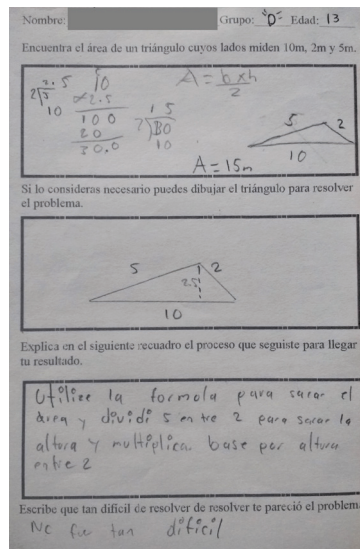 Nombre: Grupo: "D" Edad: 13
Encuentra el área de un triángulo cuyos lados miden 10m, 2m y 5m.
2.5
2)5
10
10
×2.5
100
20
30.0
15
2)30
10
A = b x h
2
5 2
10
A = 15m
Si lo consideras necesario puedes dibujar el triángulo para resolver
el problema.
5 2
2.5
10
Explica en el siguiente recuadro el proceso que seguiste para llegar
tu resultado.
Utilize la formola para sacar el
área y dividi 5 entre 2 para sacar la
altura y multiplica base por altura
entre 2
Escribe que tan difícil de resolver de resolver te pareció el problem
No fue tan dificil